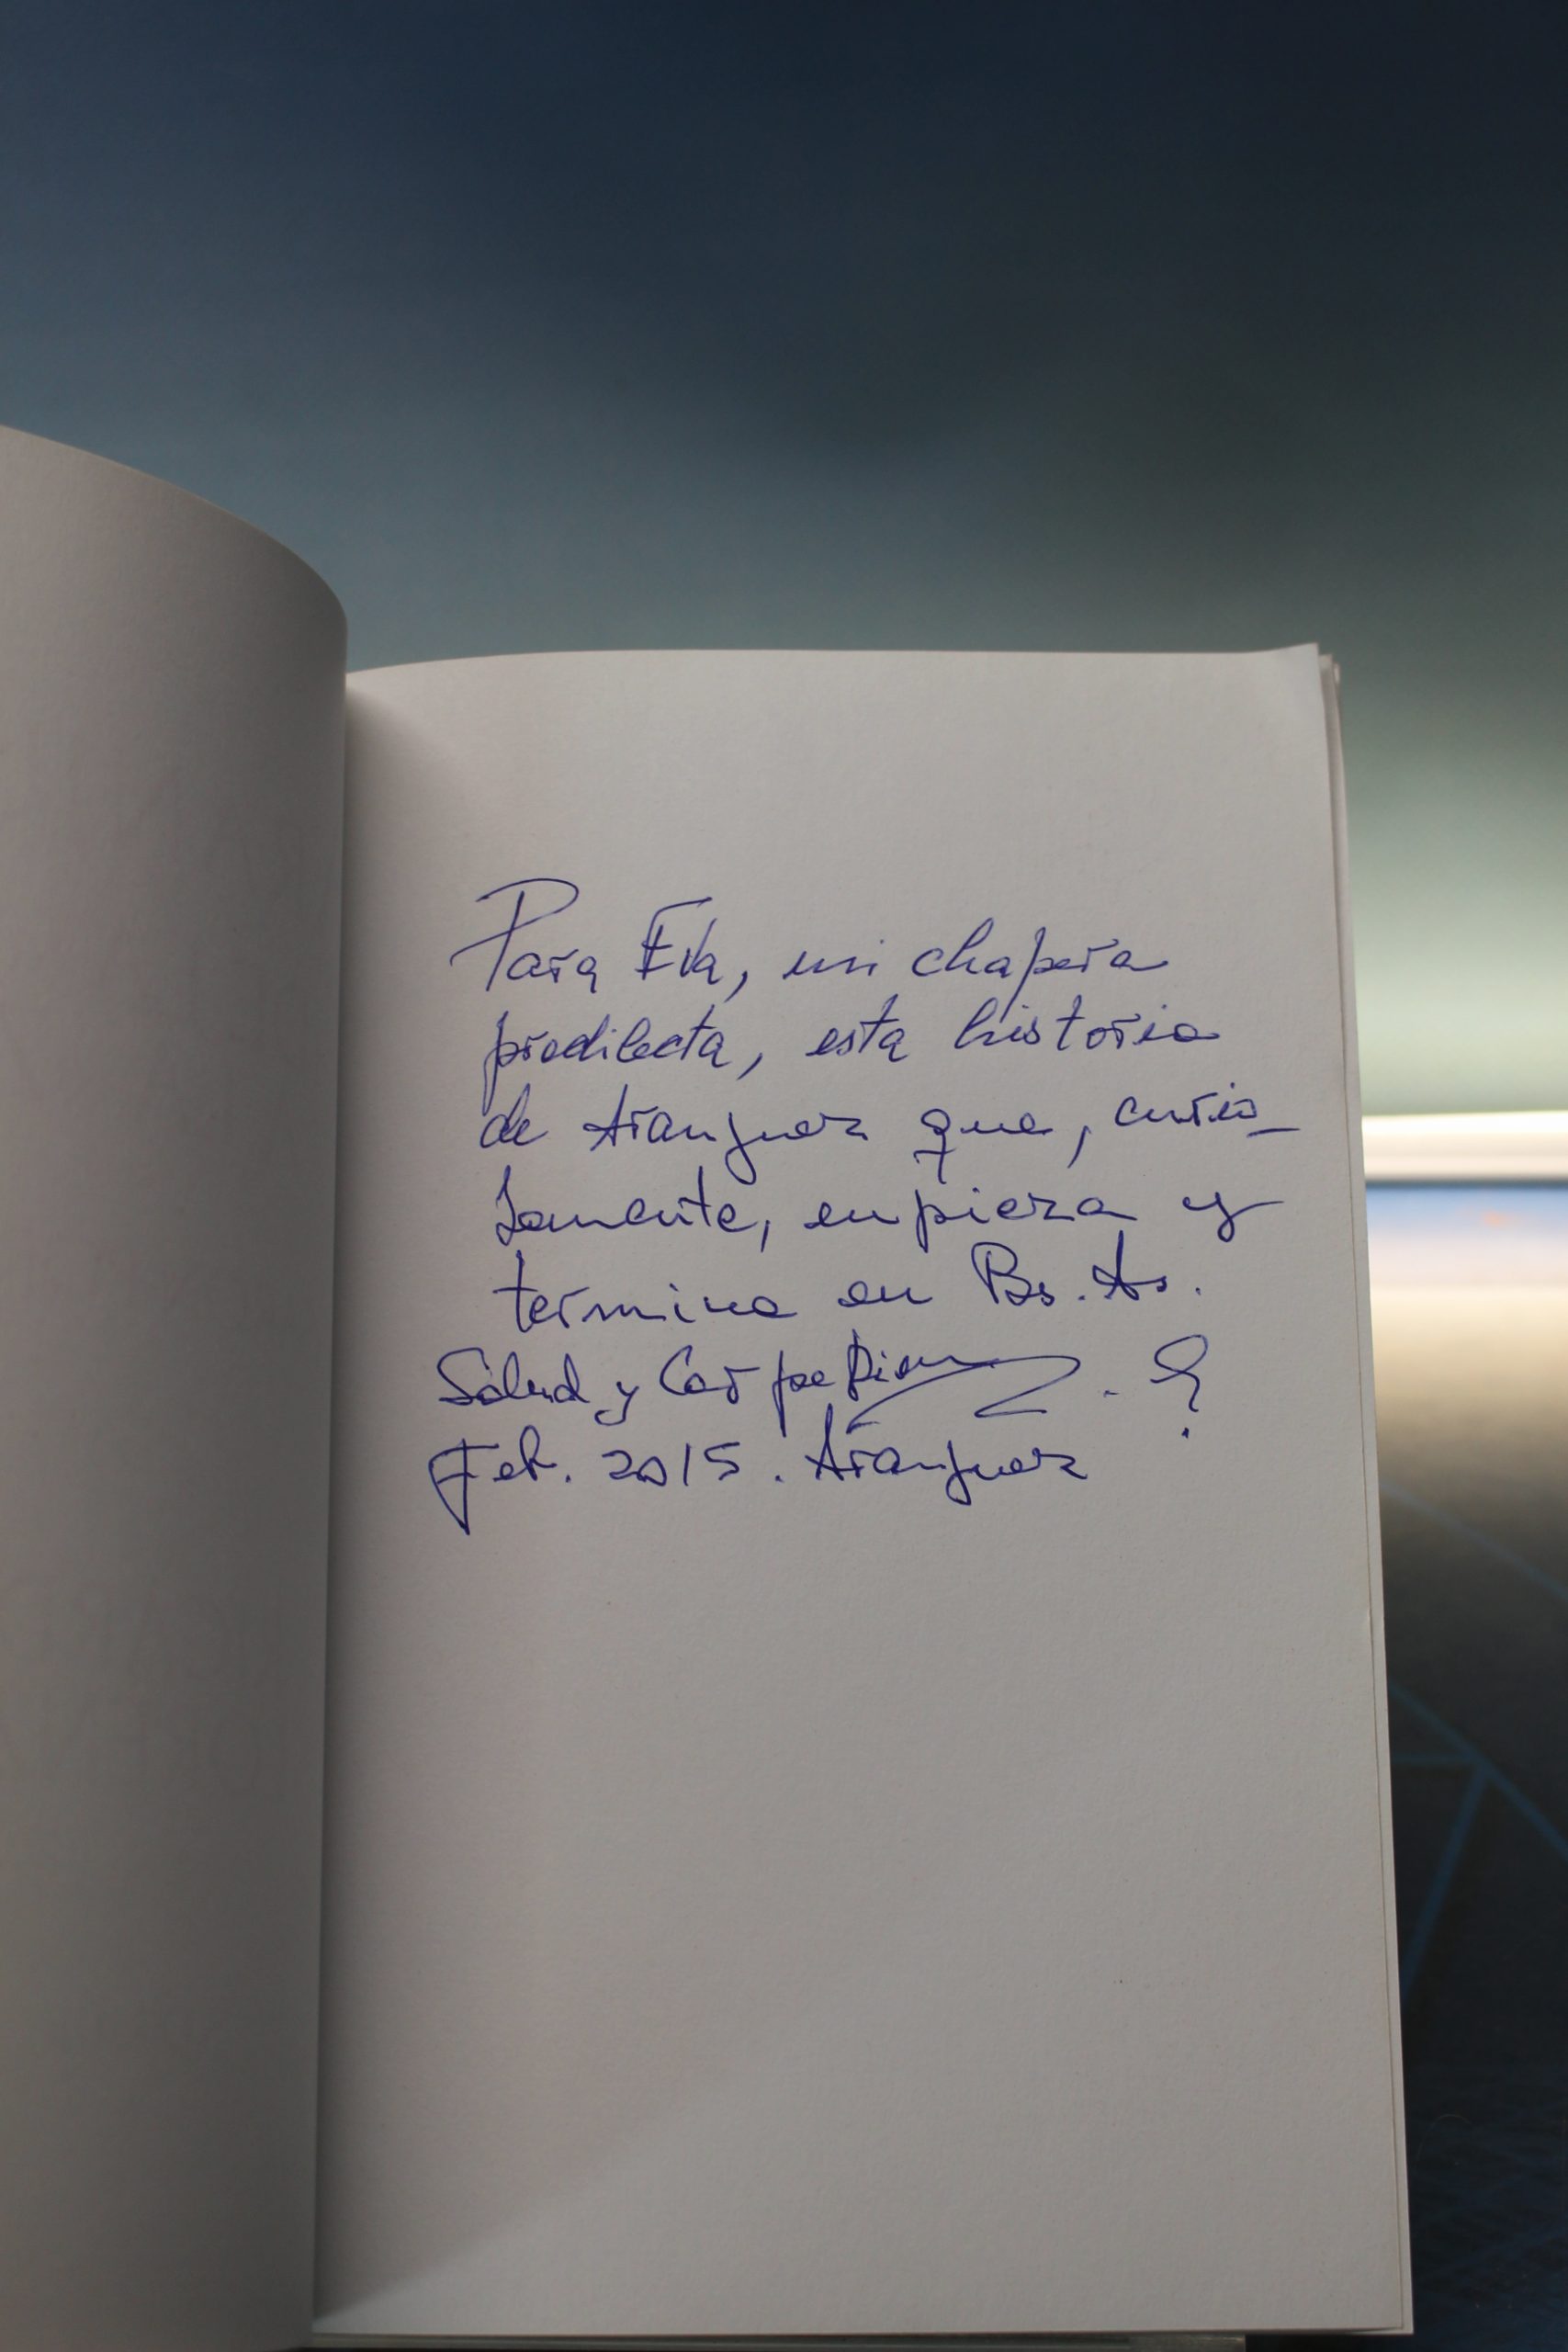 Para Eva, mi chapera
predilecta, esta historia
de Aranjuez que, curio-
samente, empieza y
termina en Bs. As.
Salud y Carpe Diem
Feb. 2015. Aranjuez